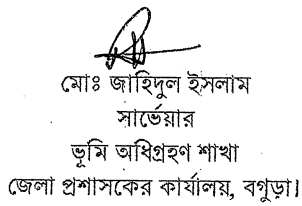 মোঃ জাহিদুল ইসলাম
সার্ভেয়ার
ভূমি অধিগ্রহণ শাখা
জেলা প্রশাসকের কার্যালয়, বগুড়া।